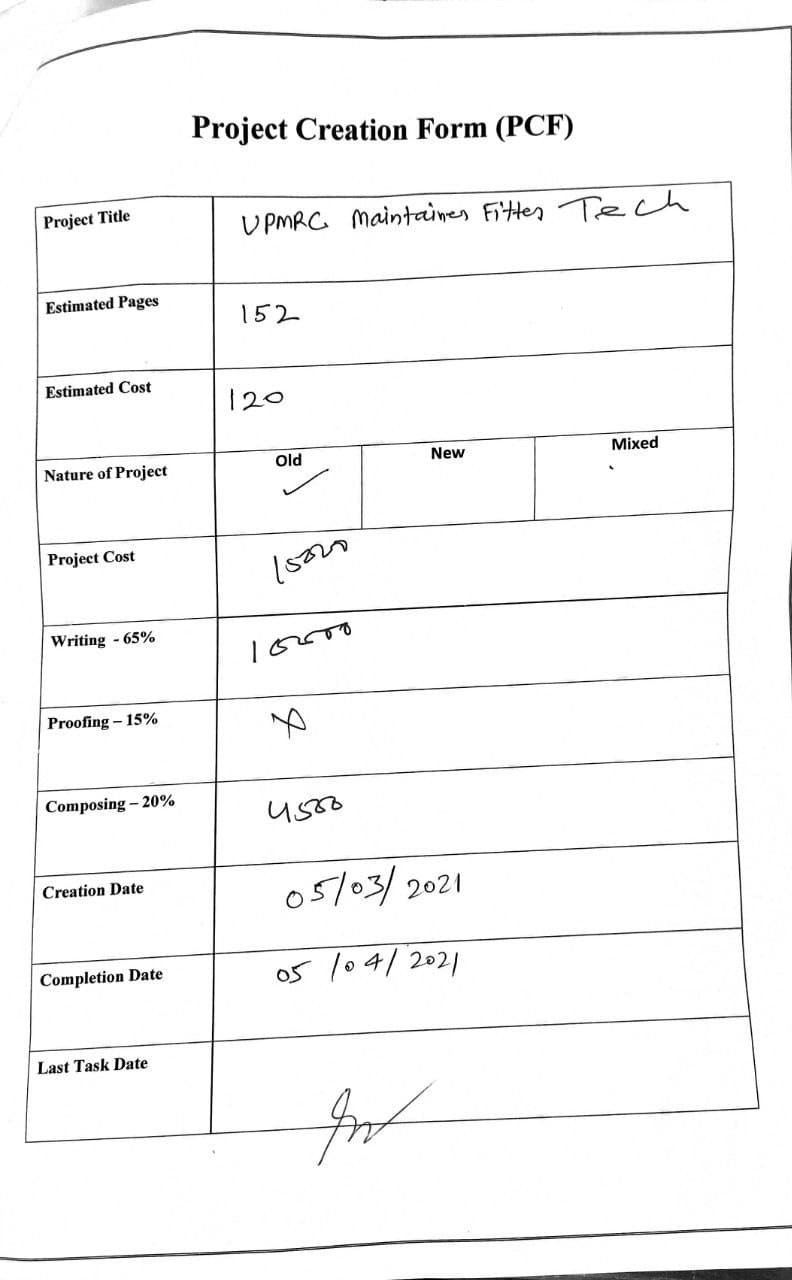 Project Creation Form (PCF)
Project Title UPMRC Maintainer Fitter Tech
Estimated Pages 152
Estimated Cost 120
Nature of Project Old ✓ New Mixed
Project Cost 15000
Writing - 65%
Proofing – 15%
Composing – 20% 4500
Creation Date 05/03/2021
Completion Date 05/04/2021
Last Task Date